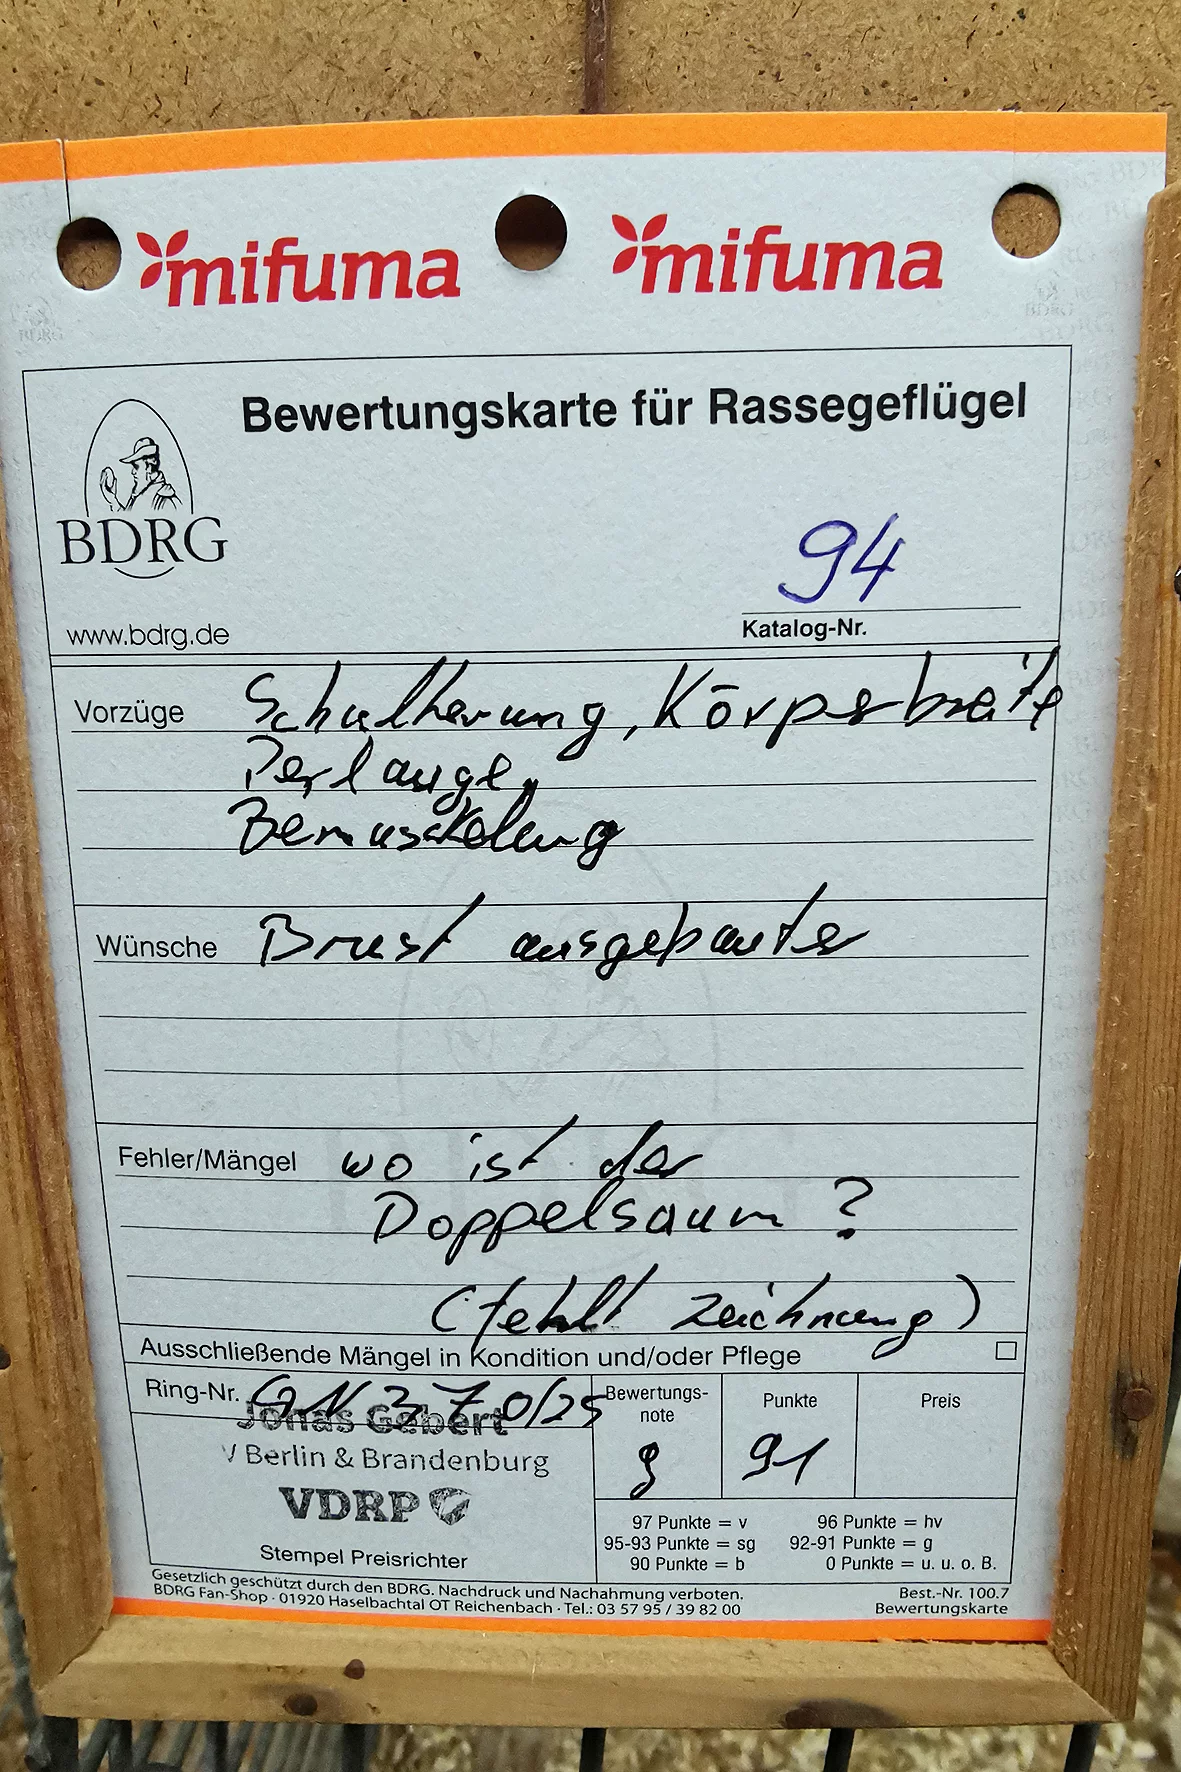 mifuma mifuma
Bewertungskarte für Rassegeflügel
BDRG
94
www.bdrg.de
Katalog-Nr.
Vorzüge Schulterung, Körperbreite
Perlauge,
Bemuskelung
Wünsche Brust ausgebauter
Fehler/Mängel wo ist der
Doppelsaum?
(fehlt Zeichnung)
Ausschließende Mängel in Kondition und/oder Pflege
Ring-Nr. GN 370/25
Jonas Gebert
V Berlin & Brandenburg
VDRP
Stempel Preisrichter
Bewertungs-
note
g
Punkte
91
Preis
97 Punkte = v 96 Punkte = hv
95-93 Punkte = sg 92-91 Punkte = g
90 Punkte = b 0 Punkte = u. u. o. B.
Gesetzlich geschützt durch den BDRG. Nachdruck und Nachahmung verboten.
BDRG Fan-Shop · 01920 Haselbachtal OT Reichenbach · Tel.: 03 57 95 / 39 82 00
Best.-Nr. 100.7
Bewertungskarte